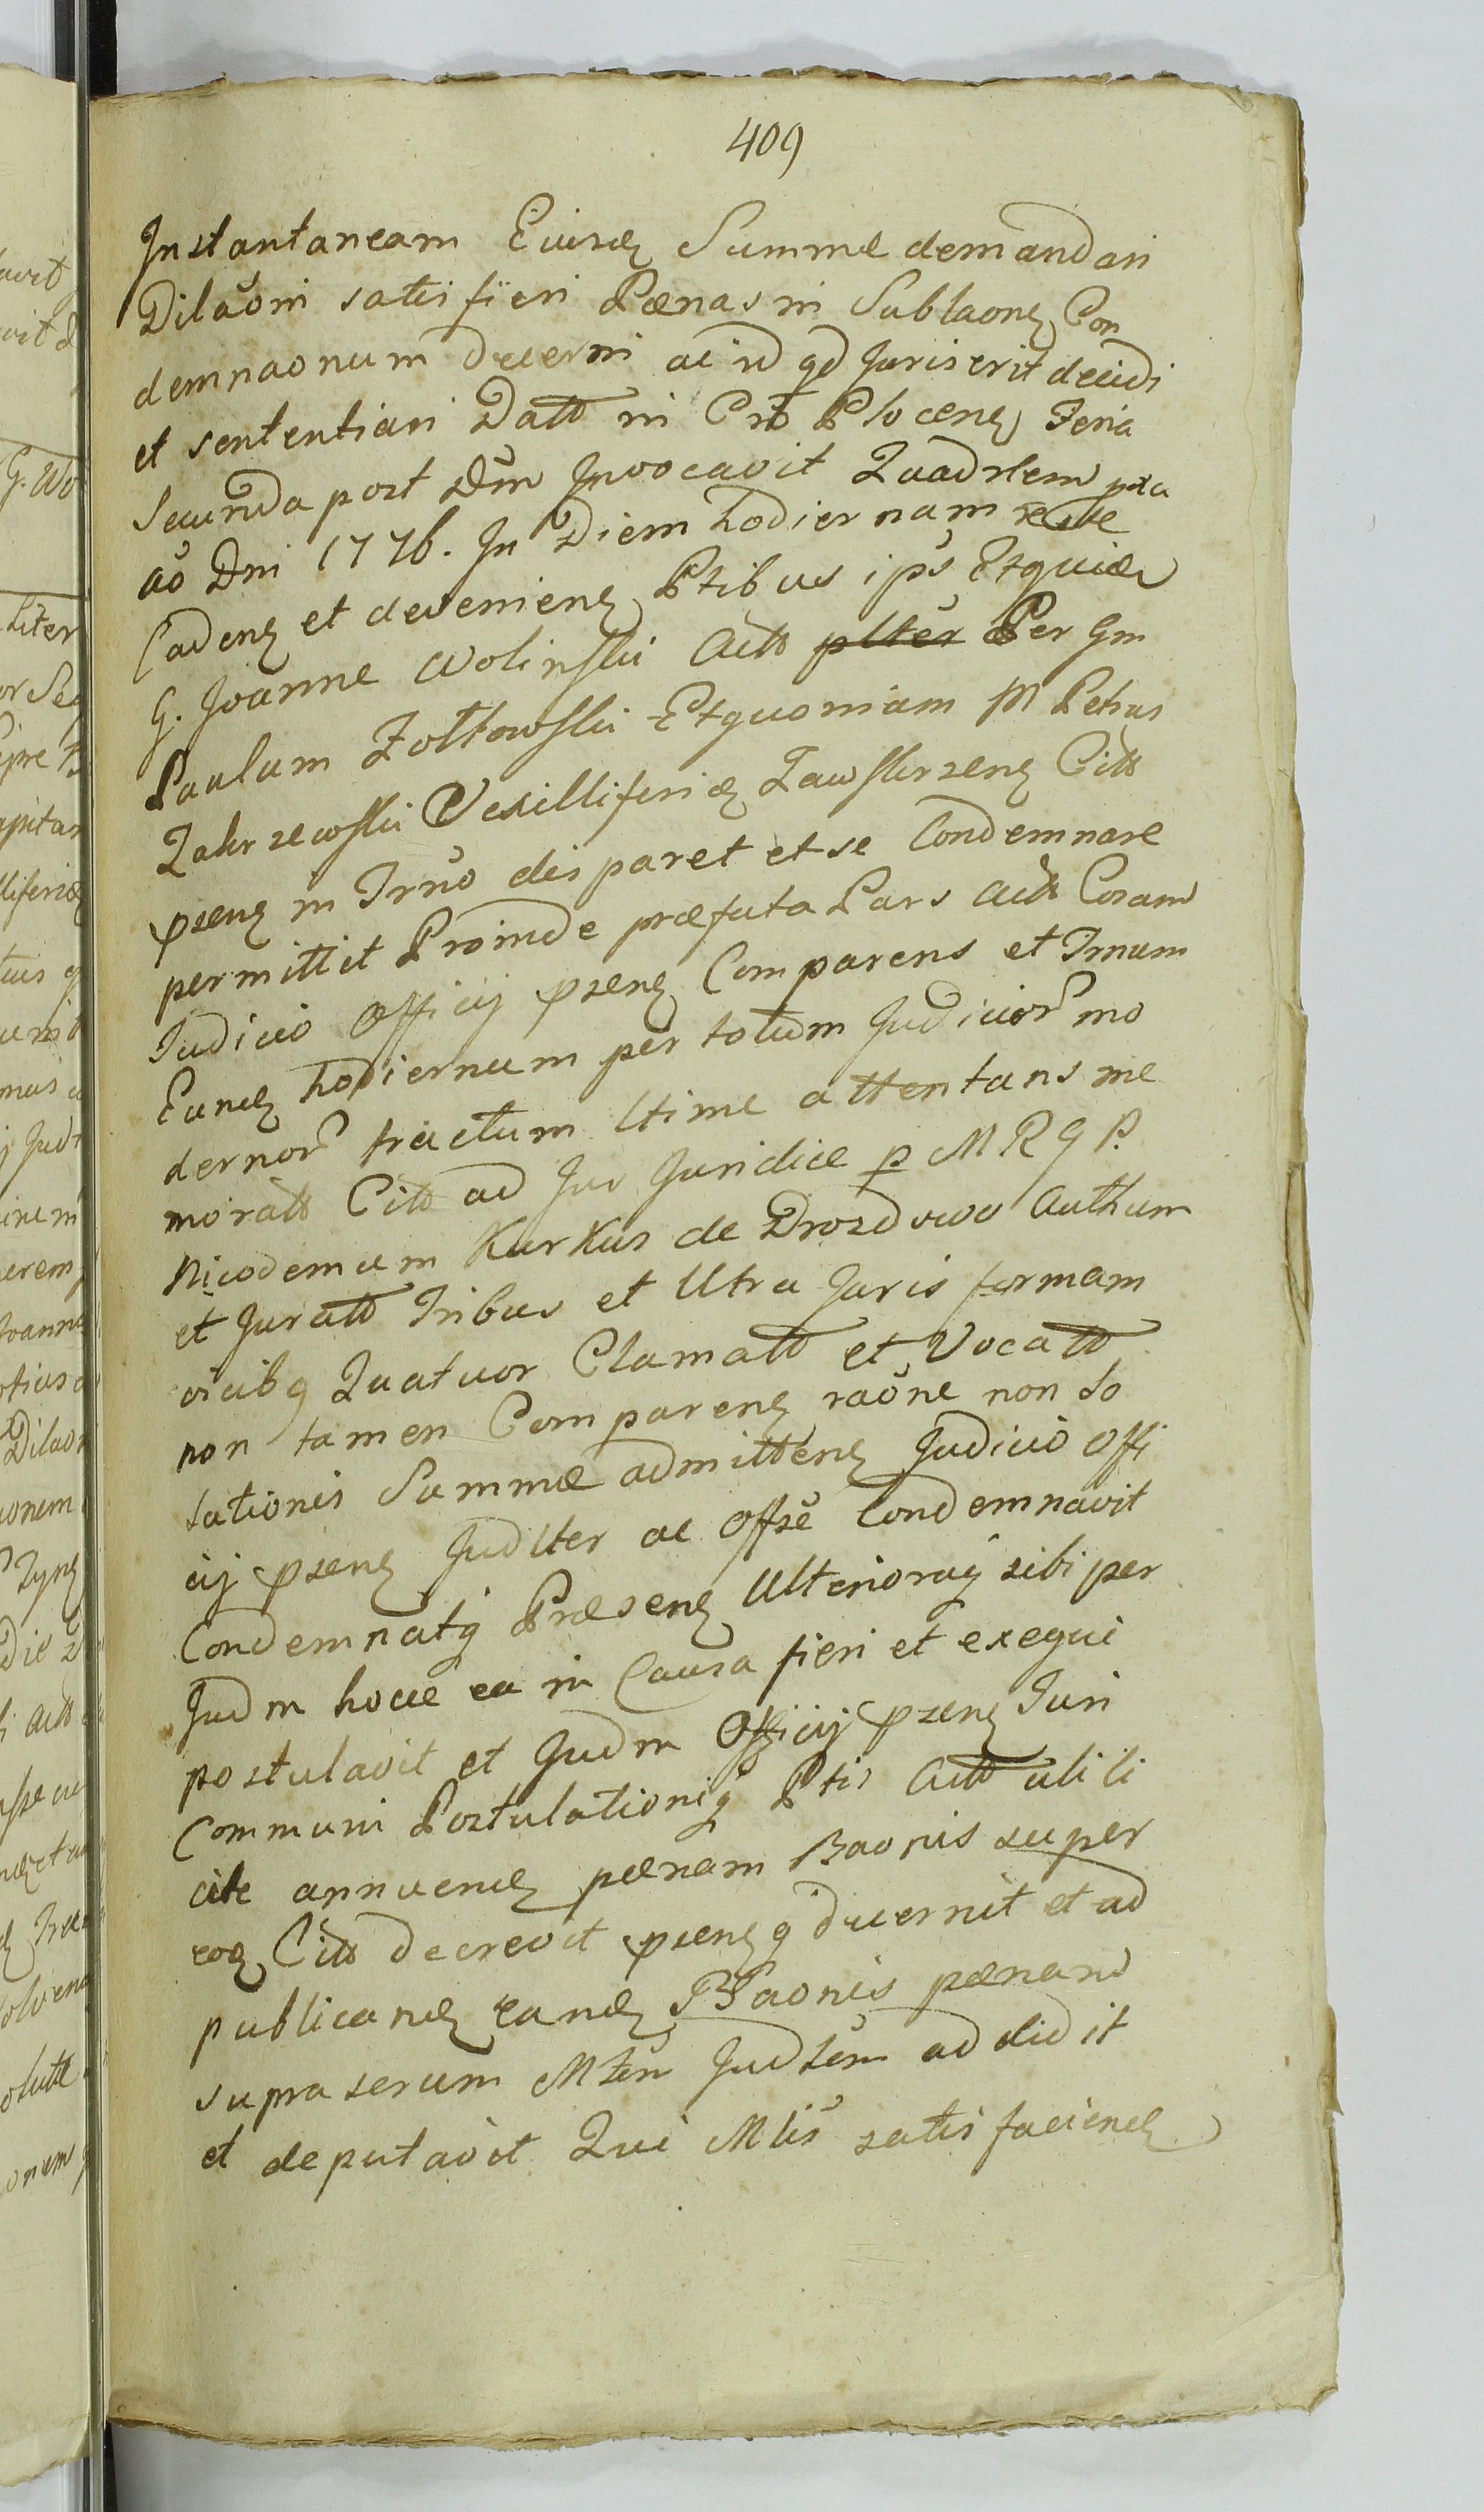 409
Instantaneam Eiusd Summæ demandari
Dilaoni satisfieri Pænas in Sublaone Con
demnaonum decerni ac id qd Juris erit decidi
et sententiari Datt in Cro Plocen Feria
Secunda post Dm Invocavit Quadrlem pxa
ao Dni 1776. In Diem hodiernam recte
Caden et devenien Ptibus ips Etquid
G. Joanne Wolinski Actt plter Per Gm
Paulum Zołtowski Etquoniam M Petrus
Zakrzewski Vexilliferid Zawskrzen Citt
psens in Trno disparet et se Condemnare
permittit Proinde præfata Pars Actt Coram
Judicio Officij psens Comparens et Trnum
Eund hodiernum per totum Judicior mo
dernor tractum ltime attentans me
moratt Citt ad Jus Juridice p M R G P.
Nicodemum Kurkus de Drozdowo Authum
et Juratt Tribus et Utra Juris formam
vicibq Quatuor Clamatt et Vocatt
non tamen Comparen raone non so
lutionis Summæ admitten Judicio Offi
cij psens Judlter ac Offse Condemnavit
Condemnatq Præsens Ulterioraq sibi per
Judm hocce ea in Causa fieri et exequi
postulavit et Judm Officij psens Juri
Communi Postulationiq Ptis Actt uti li
cite annuend pænam Baonis super
eod Citt decrevit psensq decernit et ad
publicand eand Baonis pænam
supra serum Mtem Judlem addidit
et deputavit Qui Mlis satisfaciend